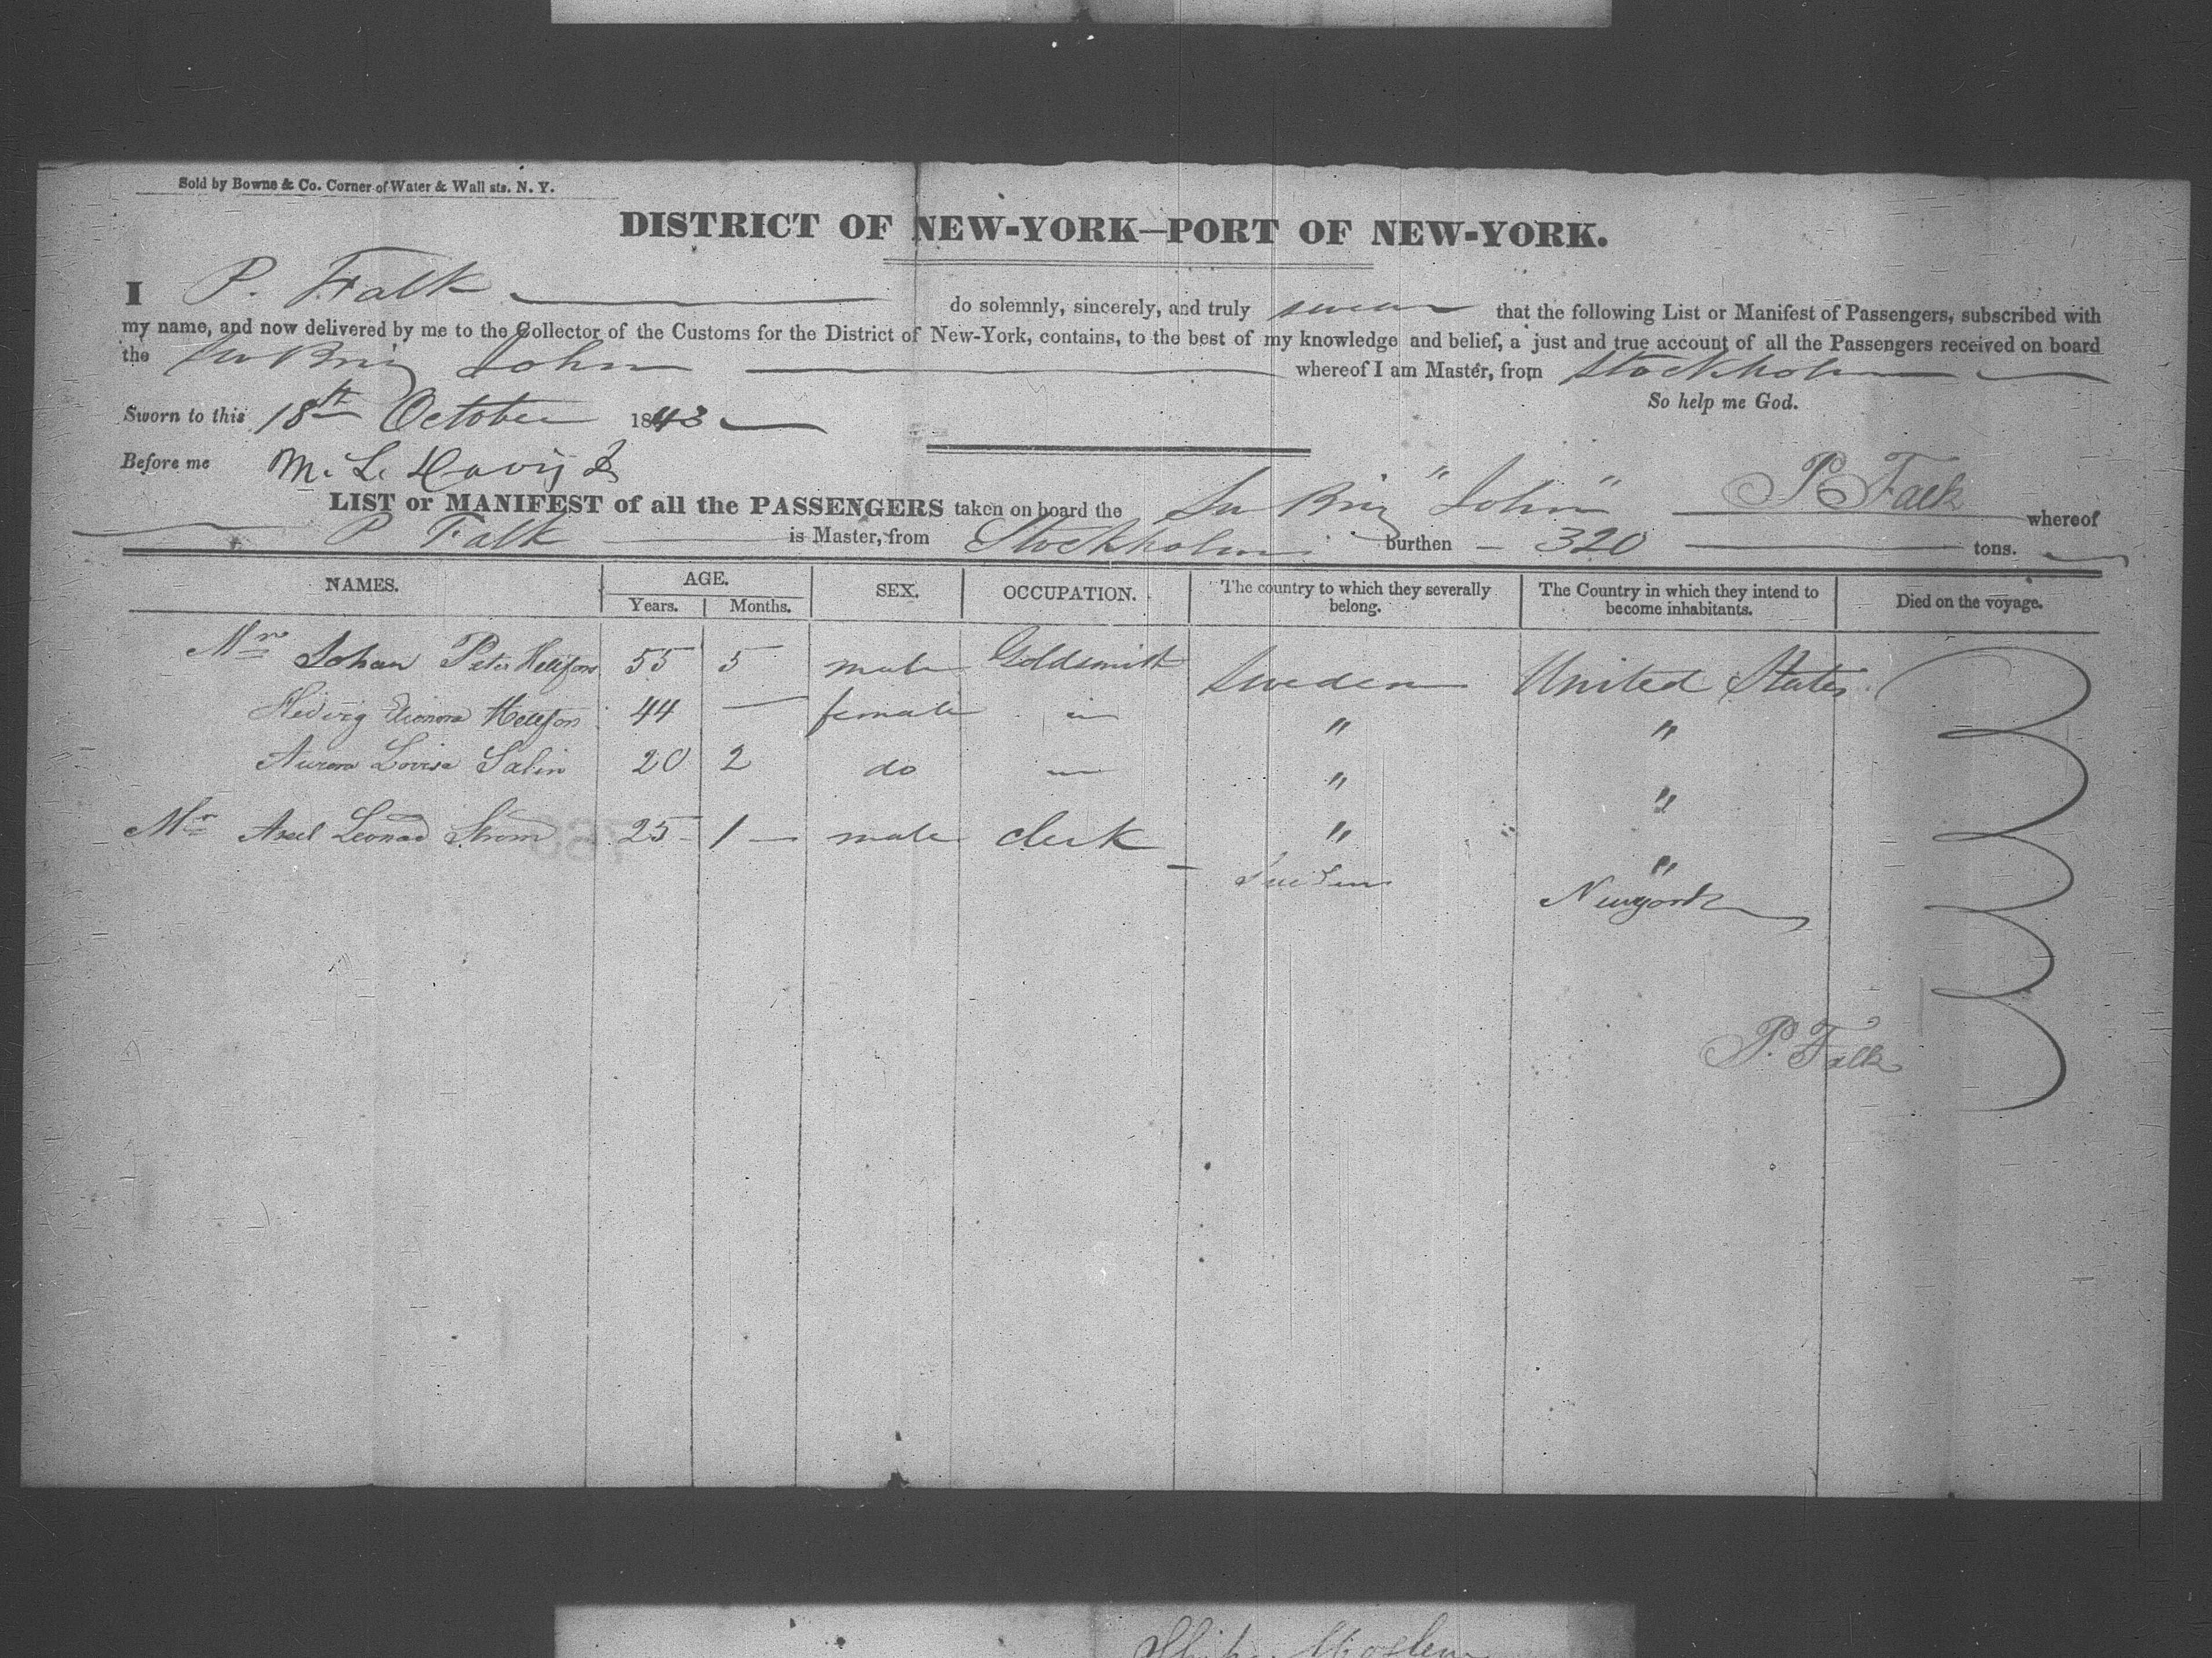 Sold by Bowne & Co. Corner of Water & Wall sts. N. Y.
DISTRICT OF NEW-YORK—PORT OF NEW-YORK.
I P. Falk do solemnly, sincerely, and truly swear that the following List or Manifest of Passengers, subscribed with
my name, and now delivered by me to the Collector of the Customs for the District of New-York, contains, to the best of my knowledge and belief, a just and true account of all the Passengers received on board
the Sw Brig John whereof I am Master, from Stockholm
So help me God.
Sworn to this 18th October 1843
Before me M. L. Davis
P Falk
LIST or MANIFEST of all the PASSENGERS taken on board the Sw Brig "John" whereof
P Falk is Master, from Stockholm burthen — 320 tons.
NAMES. AGE. SEX. OCCUPATION. The country to which they severally belong. The Country in which they intend to become inhabitants. Died on the voyage.
Years. Months.
Mr Johan Peter 55 5 male Goldsmith Sweden United States
Hedvig Eleonora 44 — female — " "
Aurora Lovisa Salin 20 2 do — " "
Mr Axel Leonad Strom 25 1 — male clerk " "
Sweden Newyork
P. Falk
Ship Moslem